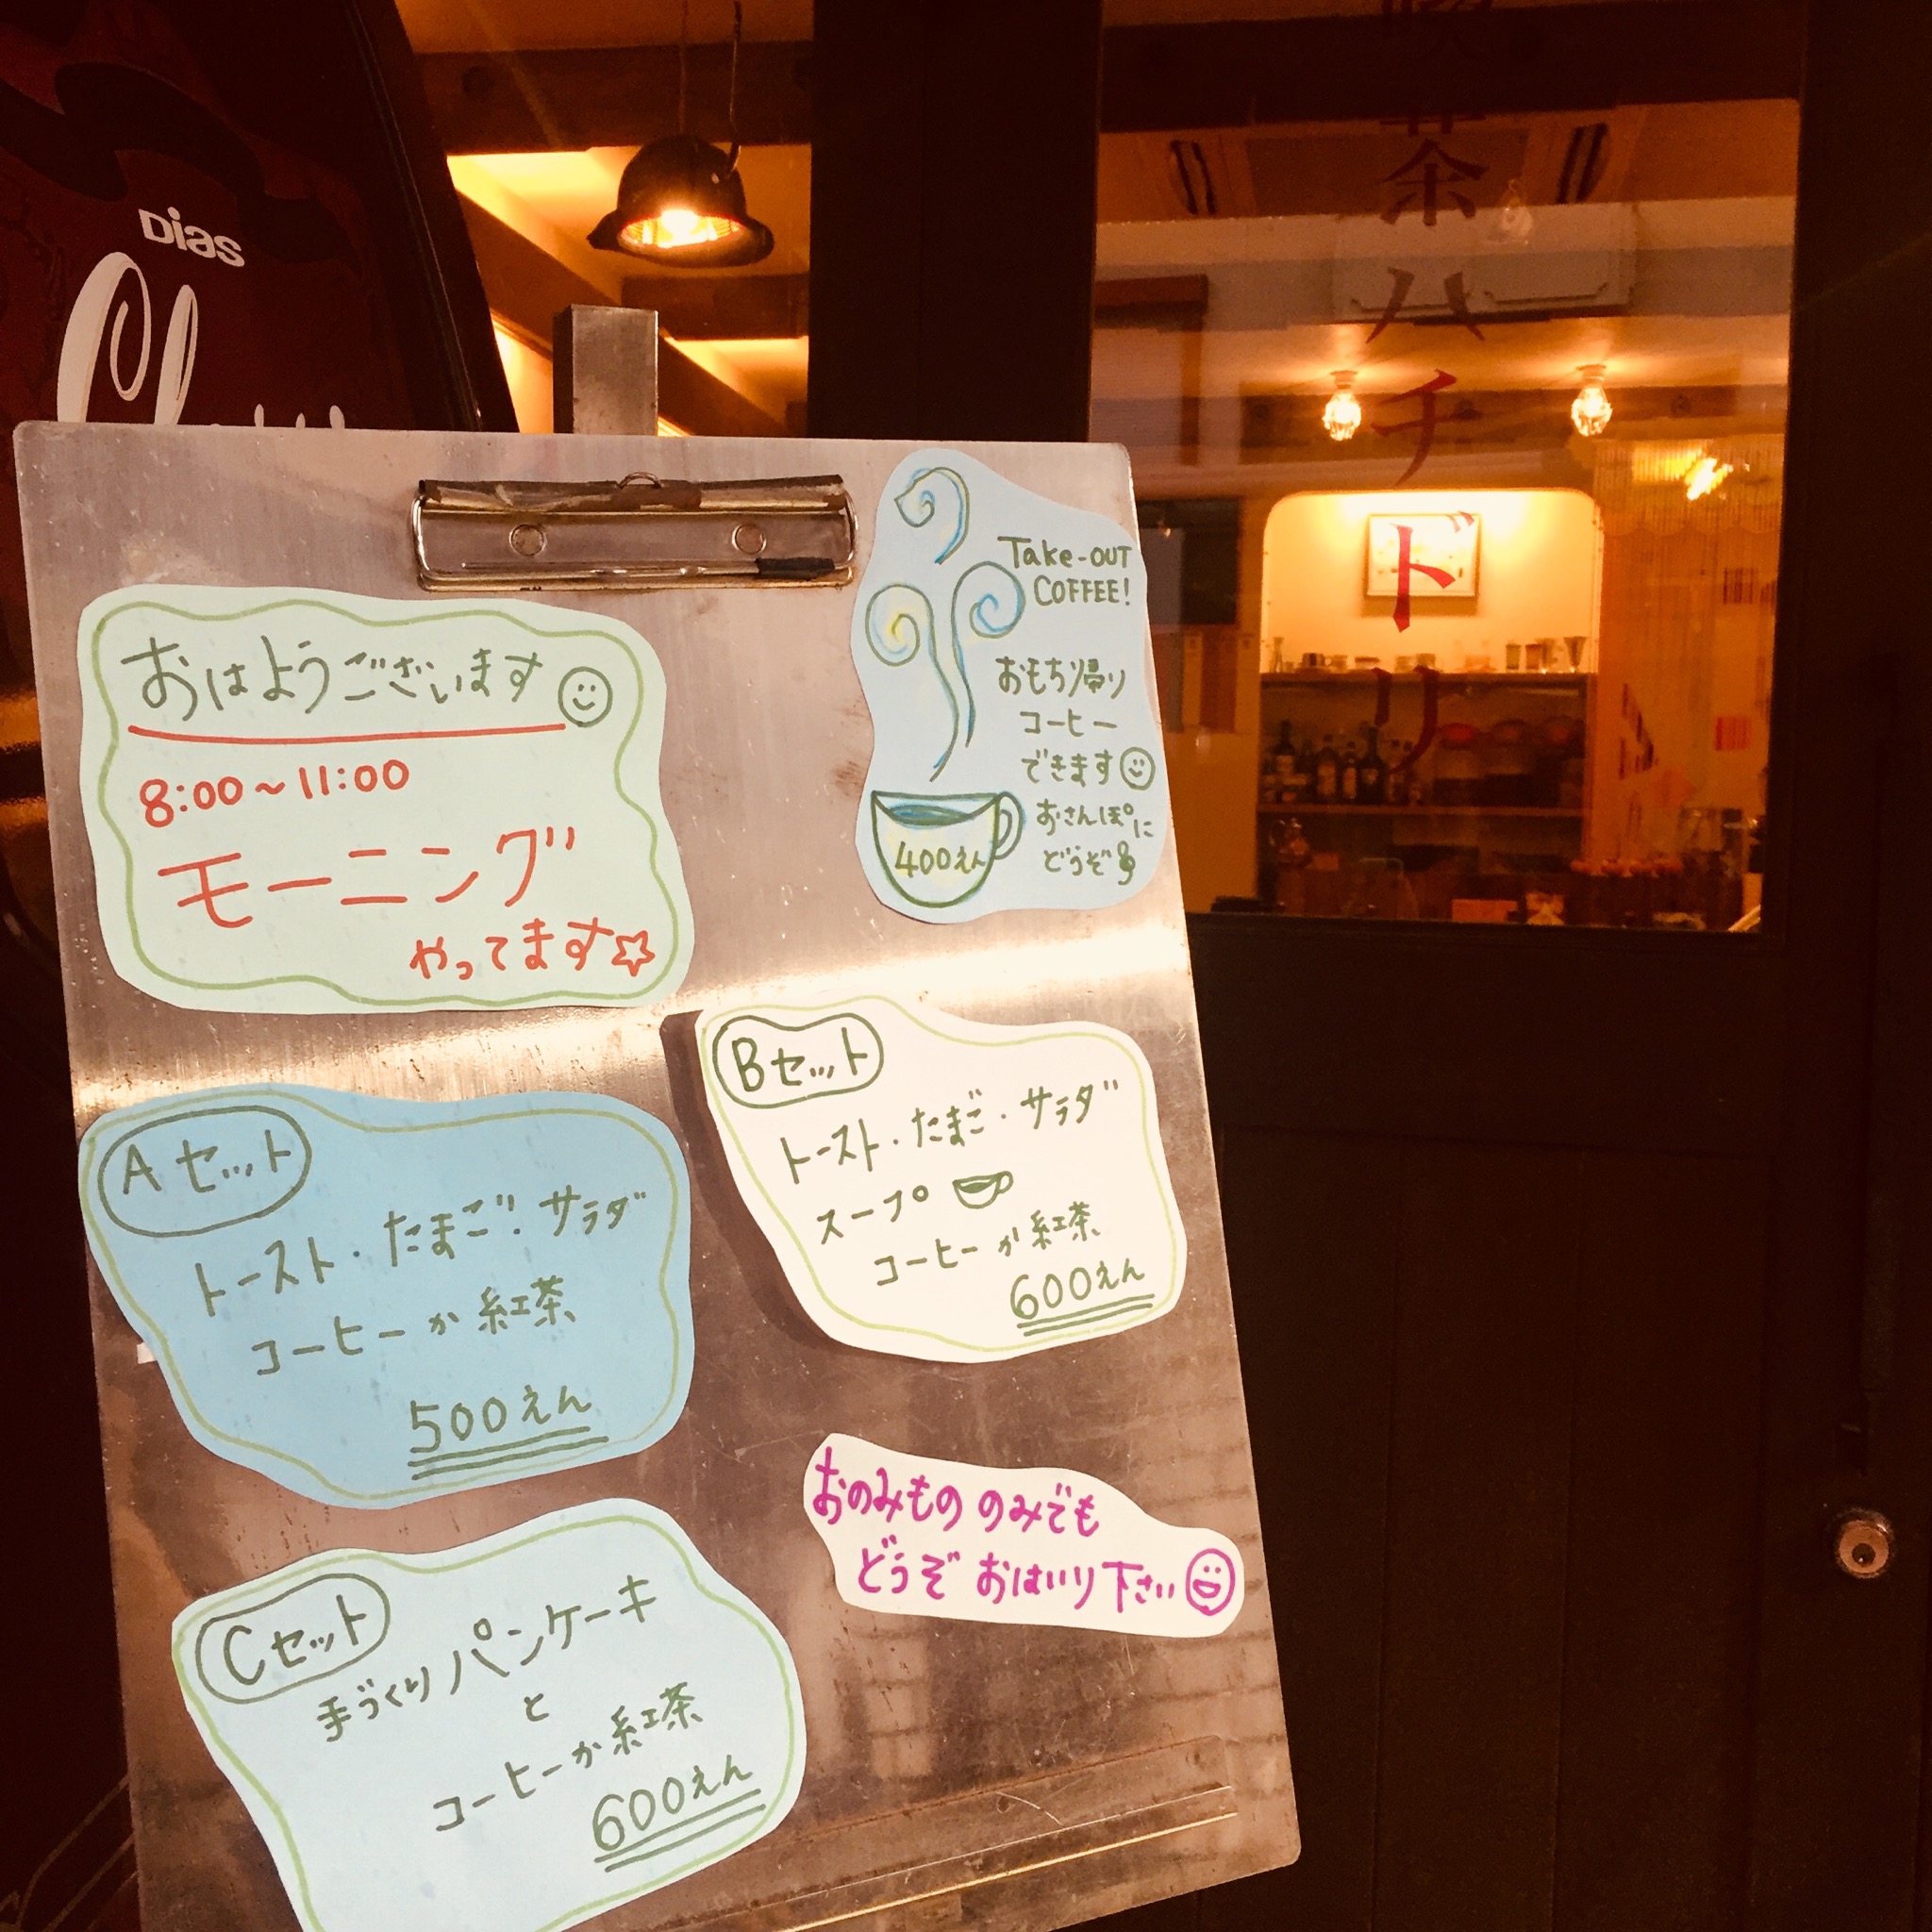 Dias
おはようございます
8:00~11:00
モーニング
やってます☆
Take-OUT
COFFEE!
おもち帰り
コーヒー
できます
おさんぽに
どうぞ
400えん
Aセット
トースト・たまご・サラダ
コーヒーか紅茶
500えん
Bセット
トースト・たまご・サラダ
スープ
コーヒーか紅茶
600えん
Cセット
手づくりパンケーキ
と
コーヒーか紅茶
600えん
おのみもののみでも
どうぞおはいり下さい
茶ハチドリ